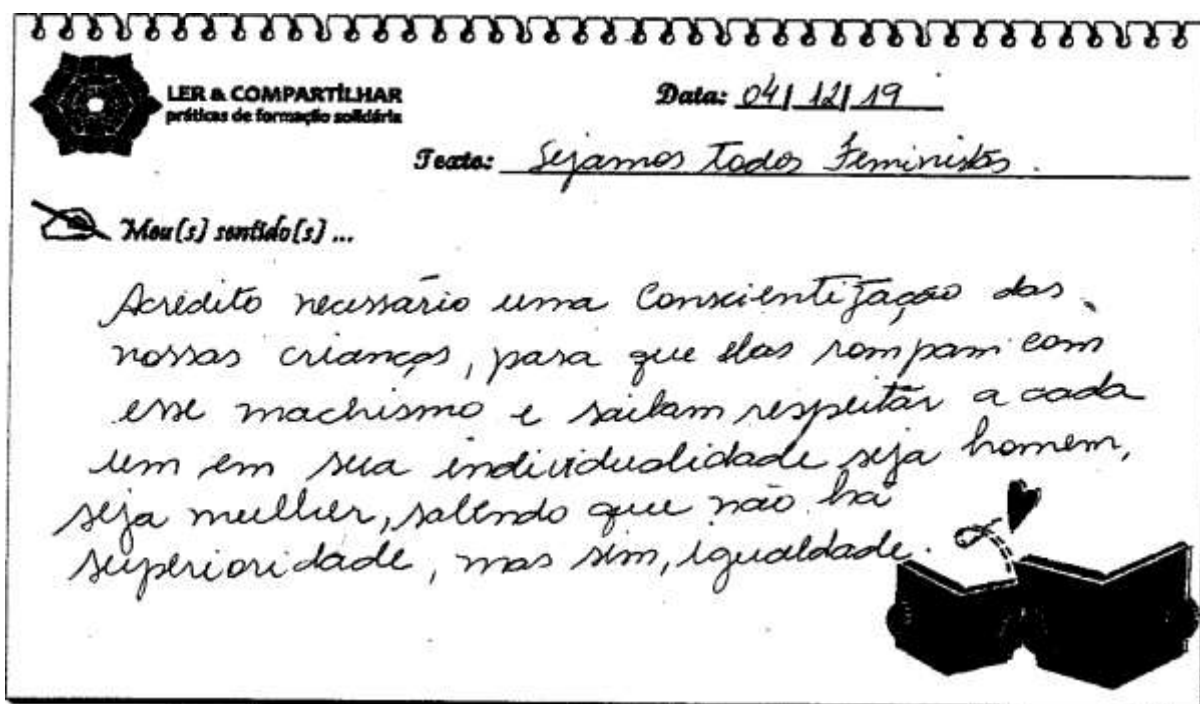 LER & COMPARTILHAR
práticas de formação solidária
Data: 04/12/19
Texto: Sejamos Todos Feministas.
Meu(s) sentido(s) ...
Acredito necessário uma Conscientização das
nossas crianças, para que elas rompam com
esse machismo e saibam respeitar a cada
um em sua individualidade seja homem,
seja mulher, sabendo que não há
superioridade, mas sim, igualdade.